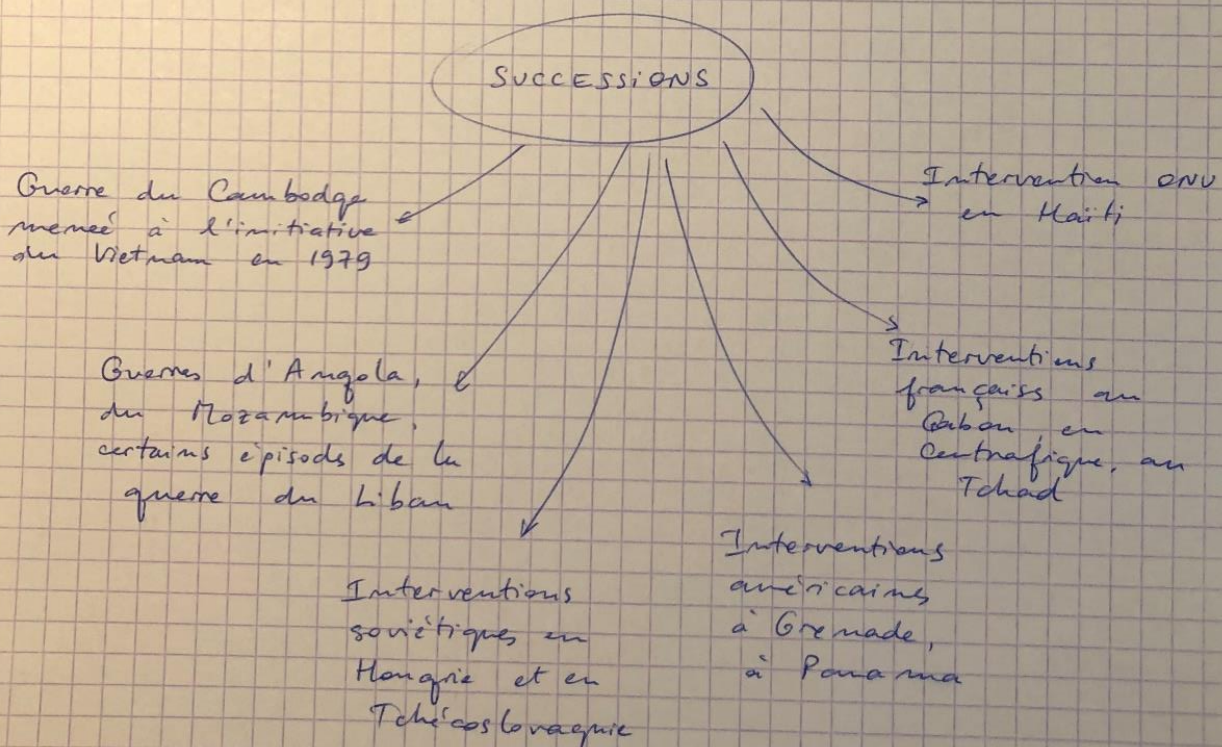 SUCCESSIONS
Guerre du Cambodge
meneé à l'initiative
du Vietnam en 1979
Guerres d'Angola,
du Mozambique,
certains épisods de la
guerre du Liban
Interventions
soviétiques en
Hongrie et en
Tchécoslovaquie
Interventions
américaines
à Grenade,
à Panama
Interventions
françaiss au
Gabon, en
Centrafique, au
Tchad
Intervention ONU
en Haïti